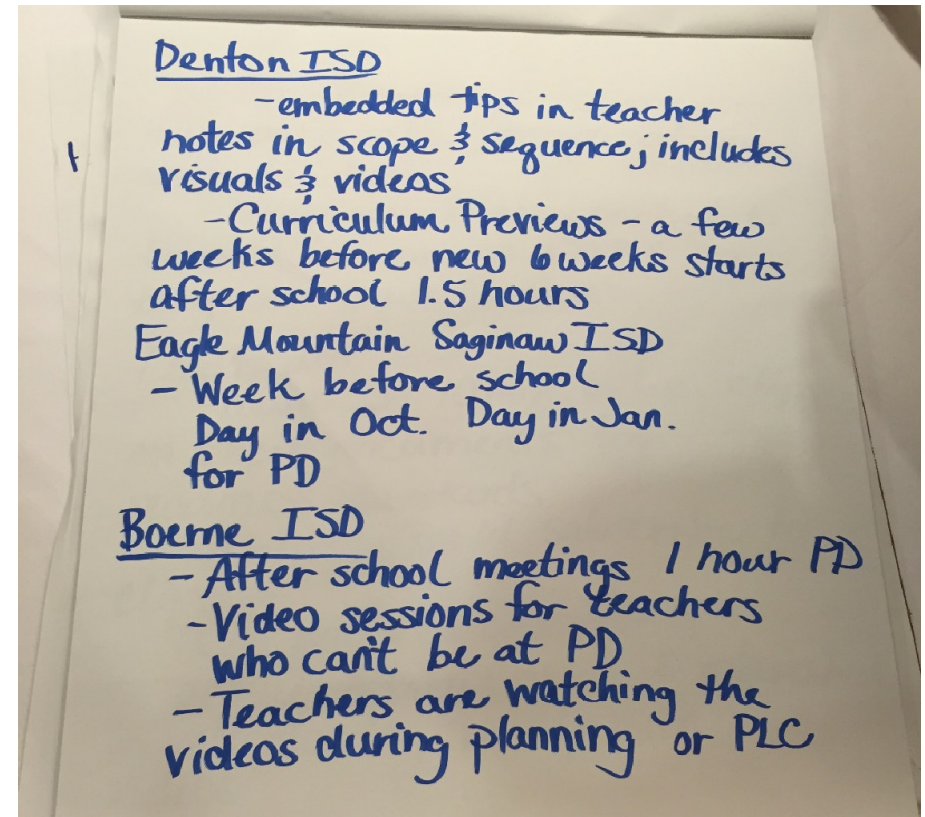 Denton ISD
-embedded tips in teacher
notes in scope & sequence; includes
visuals & videos
-Curriculum Previews - a few
weeks before new 6 weeks starts
after school 1.5 hours
Eagle Mountain Saginaw ISD
- Week before school
Day in Oct. Day in Jan.
for PD
Boerne ISD
- After school meetings 1 hour PD
-Video sessions for teachers
who can't be at PD
- Teachers are watching the
videos during planning or PLC